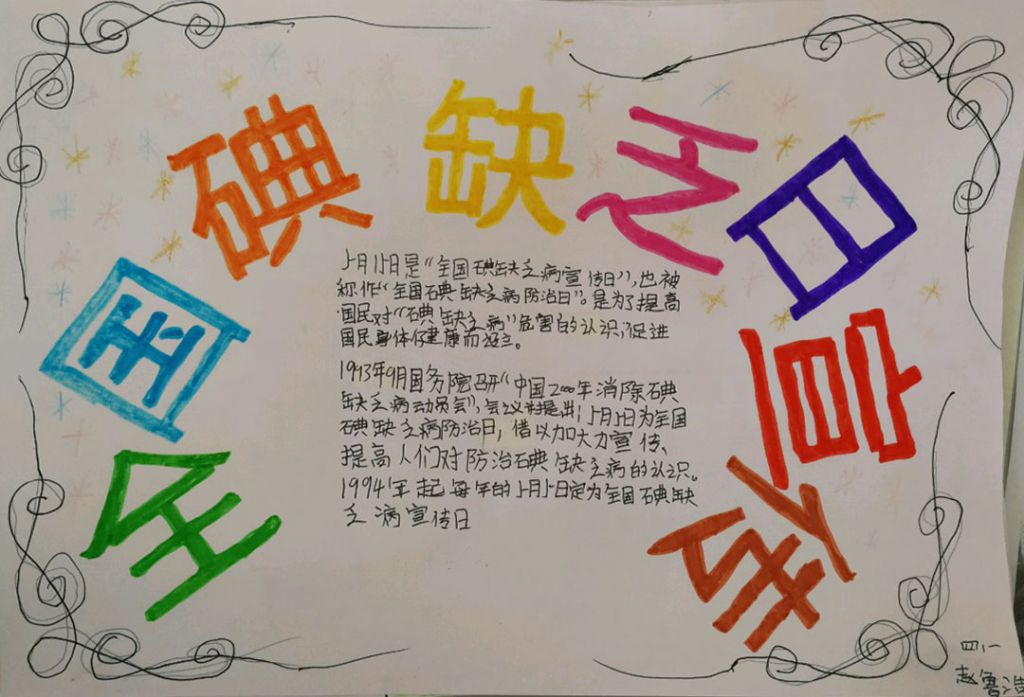 全国碘缺乏日宣传
5月15日是“全国碘缺乏病宣传日”,也被
称作“全国碘缺乏病防治日”。是为了提高
国民对“碘缺乏病”危害的认识,促进
国民身体健康而设立。
1993年9月国务院召开“中国2000年消除碘
缺乏病动员会”,会议并提出5月5日为全国
碘缺乏病防治日,借以加大力宣传、
提高人们对防治碘缺乏病的认识。
1994年起每年的5月15日定为全国碘缺
乏病宣传日
四、一
赵